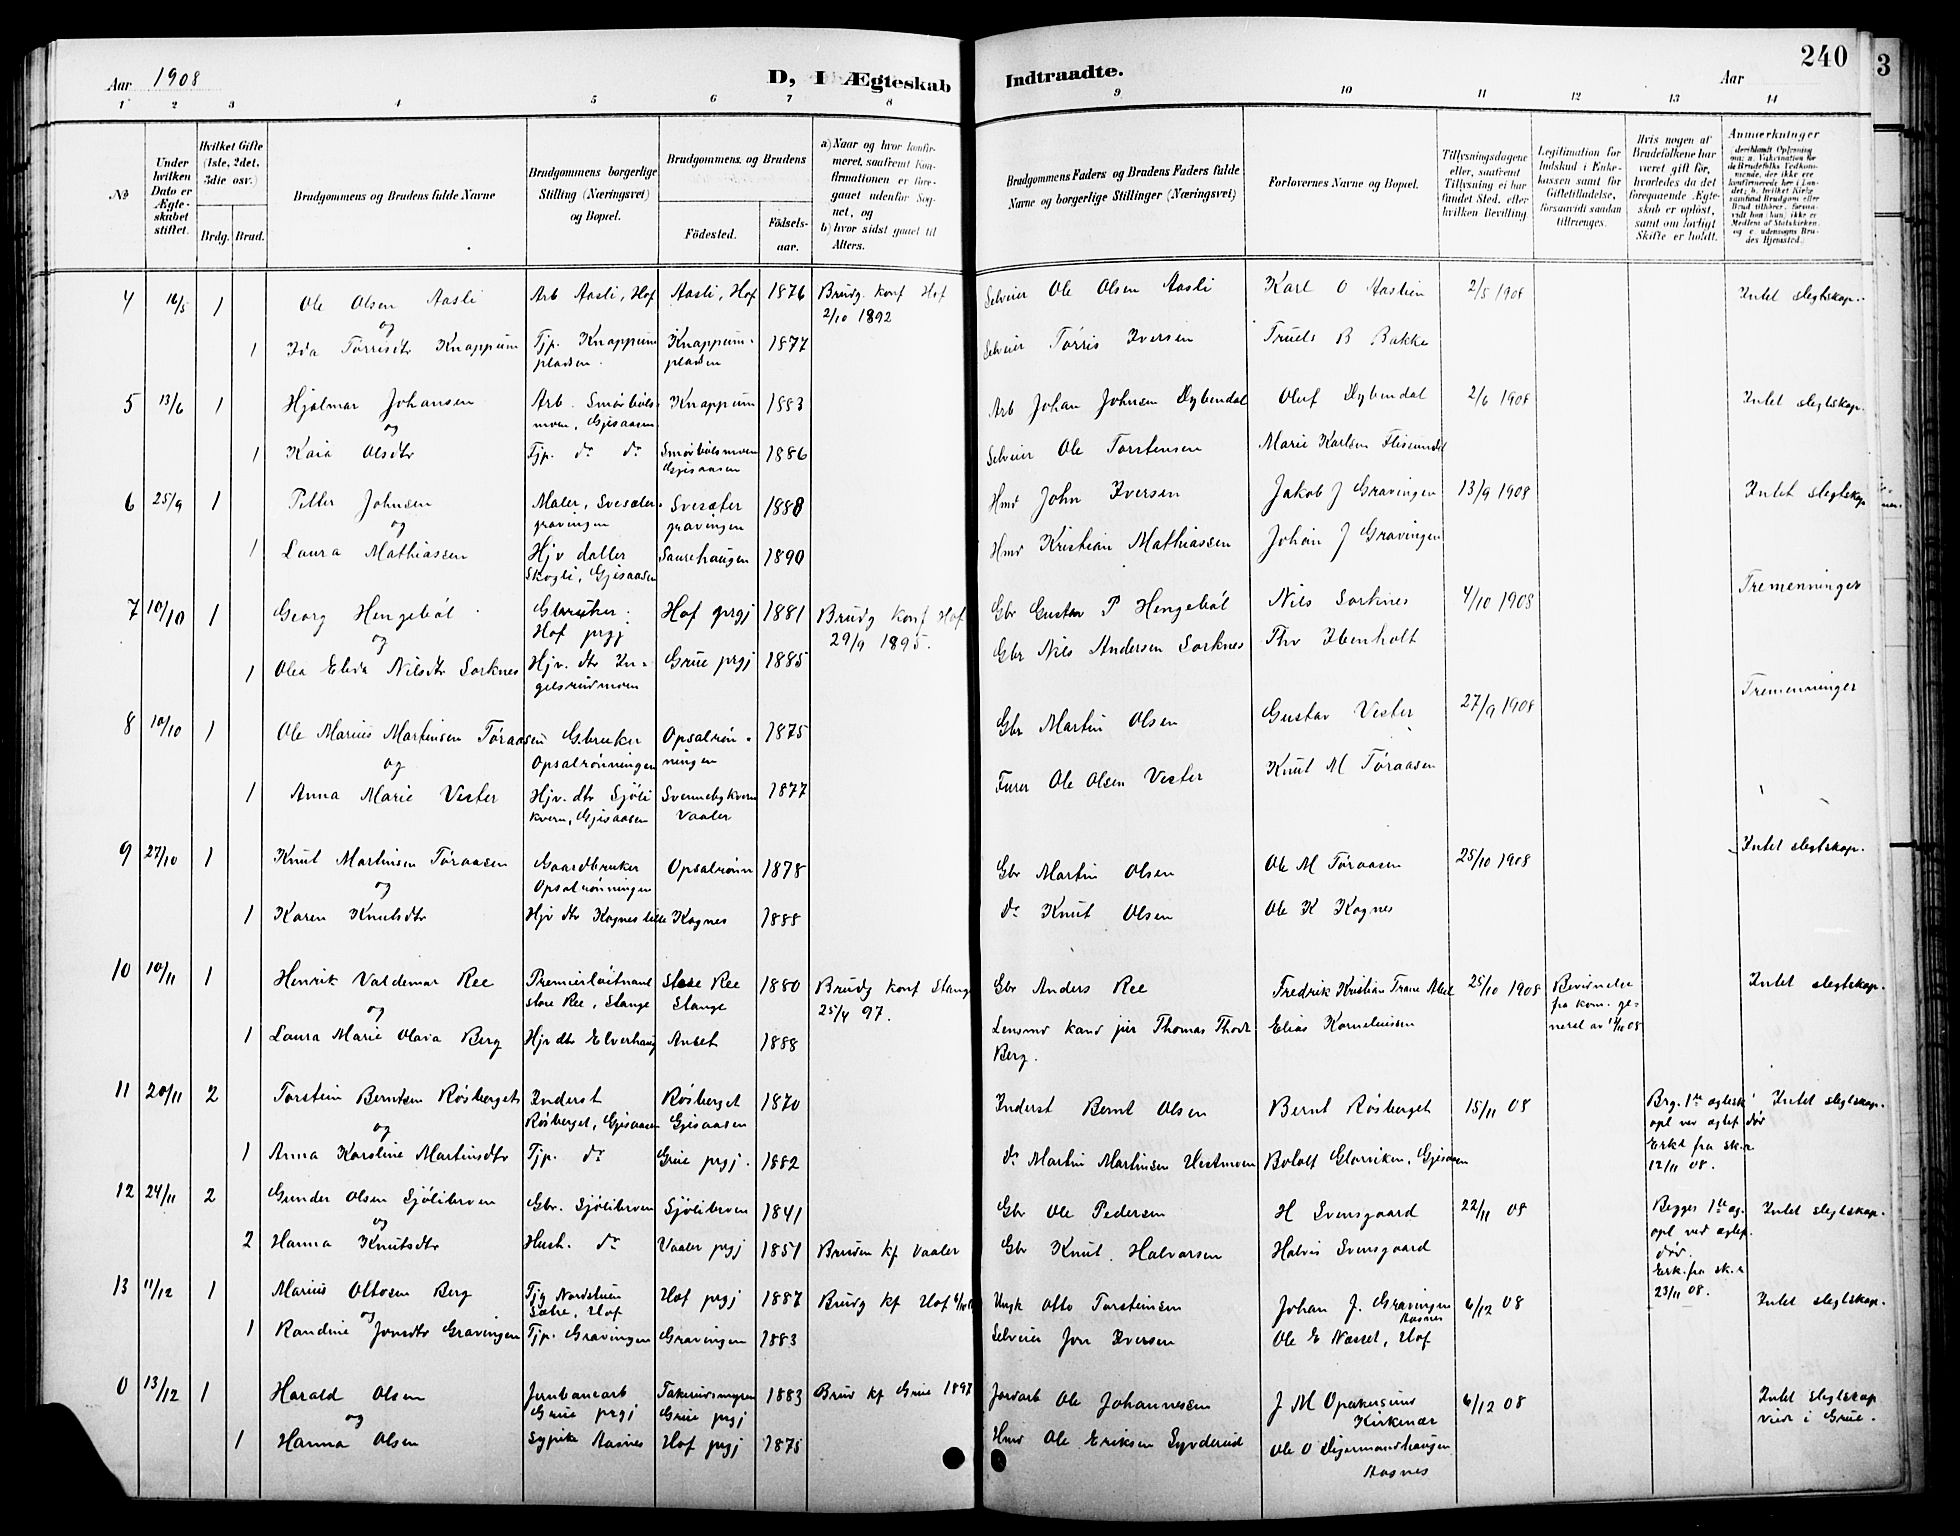 Aar 1908
D, I Ægteskab Indtraadte.
Aar
240
3
1 2 3 4 5 6 7 8 9 10 11 12 13 14
No
Under hvilken Dato er Ægteskabet stiftet.
Hvilket Gifte (1ste, 2det, 3die osv.)
Brdg. Brud.
Brudgommens og Brudens fulde Navne
Brudgommens borgerlige Stilling (Næringsvei) og Bopæl.
Brudgommens og Brudens
Fødested. Fødselsaar.
a) Naar og hvor konfirmeret, saafremt Konfirmationen er foregaaet udenfor Sognet, og
b) hvor sidst gaaet til Alters.
Brudgommens Faders og Brudens Faders fulde Navne og borgerlige Stillinger (Næringsvei)
Forlovernes Navne og Bopæl.
Tillysningsdagene eller, saafremt Tillysning ei har fundet Sted, efter hvilken Bevilling
Legitimation for Indskud i Enkekassen samt for Giftetilladelse, forsaavidt saadan tiltrænges.
Hvis nogen af Brudefolkene har været gift før, hvorledes da det foregaaende Ægteskab er opløst, samt om lovligt Skifte er holdt.
Anmærkninger
4 16/5 1 Ole Olsen Aasli Arb Aasli, Hof Aasli, Hof 1876 Brudg. konf Hof Selveier Ole Olsen Aasli Karl O Aaslien 2/5 1908 Intet slegtskap.
og 2/10 1892
1 Ida Tørrisdtr Knappum Tjp. Knappum Knappum- 1877 Selveier Tørris Iversen Truels B Bakke
pladsen. pladsen
5 13/6 1 Hjalmar Johansen Arb. Smørbøls- Knappum 1883 Arb Johan Johnsen Dybendal Oluf Dybendal 2/6 1908 Intet slegtskap.
og moen, Gjisaasen
1 Kaia Olsdtr Tjp. do do Smørbølsmoen 1886 Selveier Ole Torstensen Marie Karlsen Flisundet
Gjisaasen
6 25/9 1 Petter Johnsen Maler, Svesæter- Svesæter 1888 Hmd John Iversen Jakob J Gravingen 13/9 1908 Intet slegtskap
og gravingen gravingen
1 Laura Mathiassen Hjv datter Saurehaugen 1890 Hmd Kristian Mathiassen Johan J Gravingen
Skogli, Gjisaasen
7 10/10 1 Georg Hengebøl Gbruker Hof prgj 1881 Brudg konf Hof Gbr Gustav P Hengebøl Nils Sorknes 4/10 1908 Tremenninger
og Hof prgj 29/9 1895.
1 Olea Elida Nilsdtr Sorknes Hjv. dtr In- Grue prgj 1885 Gbr Nils Andersen Sorknes Thv Ibenholt
gelsrudmoen
8 10/10 1 Ole Marius Martinsen Tøraasen Gbruker Opsalrøn- 1875 Gbr Martin Olsen Gustav Vester 27/9 1908 Tremenninger
og Opsalrønningen ningen
1 Anna Marie Vester Hjv. dtr Sjøli Svennebykvern 1877 Furer Ole Olsen Vester Knut M Tøraasen
kvern, Gjisaasen Vaaler
9 27/10 1 Knut Martinsen Tøraasen Gaardbruker Opsalrønn 1878 Gbr Martin Olsen Ole M Tøraasen 25/10 1908 Intet slegtskap.
og Opsalrønningen
1 Karen Knutsdtr Hjv dtr Kognes lille Kognes 1888 do Knut Olsen Ole K Kognes
10 10/11 1 Henrik Valdemar Ree Premierløitnant store Ree 1880 Brudg konf Stange Gbr Anders Ree Fredrik Kristian Trane Abel 25/10 1908 Bevidnelse Intet slegtskap.
og store Ree, Stange Stange 25/4 97. fra kom. ge-
1 Laura Marie Olava Berg Hjv dtr Elverhaug Anset 1888 Lensmd kand jur Thomas Thodr Elias Korneliussen neral av 12/10 08
Berg.
11 20/11 2 Torstein Berntsen Røsberget Inderst Røsberget 1870 Inderst Bernt Olsen Bernt Røsberget 15/11 08 Brg. 1ste egtesk Intet slegtskap.
og Røsberget, Gjisaasen Gjisaasen opl ved egtef dør
1 Anna Karoline Martinsdtr Tjp. do Grue prgj. 1882 do Martin Martinsen Vestmoen Botolf Glorviken, Gjisaasen Erkl fra sk.r
12/11 08.
12 24/11 2 Gunder Olsen Sjøliberven Gbr. Sjøliberven Sjøliberven 1841 Gbr Ole Pedersen H Svensgaard 22/11 08 Begges 1ste eg. Intet slegtskap.
og opl ved egtef.
2 Hanna Knutsdtr Hush. do Vaaler prgj 1851 Bruden kf Vaaler Gbr Knut Halvorsen Halvis Svensgaard dør.
Erk. fra sk.r
13 11/12 1 Marius Ottosen Berg Tjg Nordstuen Hof prgj 1887 Brudg kf Hof Ungk Otto Torsteinsen Johan J. Gravingen 6/12 08 23/11 08. Intet slegtskap.
og Sætre, Hof Aasnes
1 Randine Jonsdtr Gravingen Tjp. Gravingen Gravingen 1883 Selveier Jon Iversen Ole E Næsset, Hof
0 13/12 1 Harald Olsen Jernbanearb Takerudsmyren 1883 Brud kf Grue 1897 Jordarb Ole Johannessen J M Opakersund 6/12 08 Intet slegtskap
og Grue prgj Grue prgj Kirkenær viede i Grue.
1 Hanna Olsen Sypike Aasnes Hof prgj 1875 Hmd Ole Eriksen Synderud Ole O Digermandhaugen
Aasnes